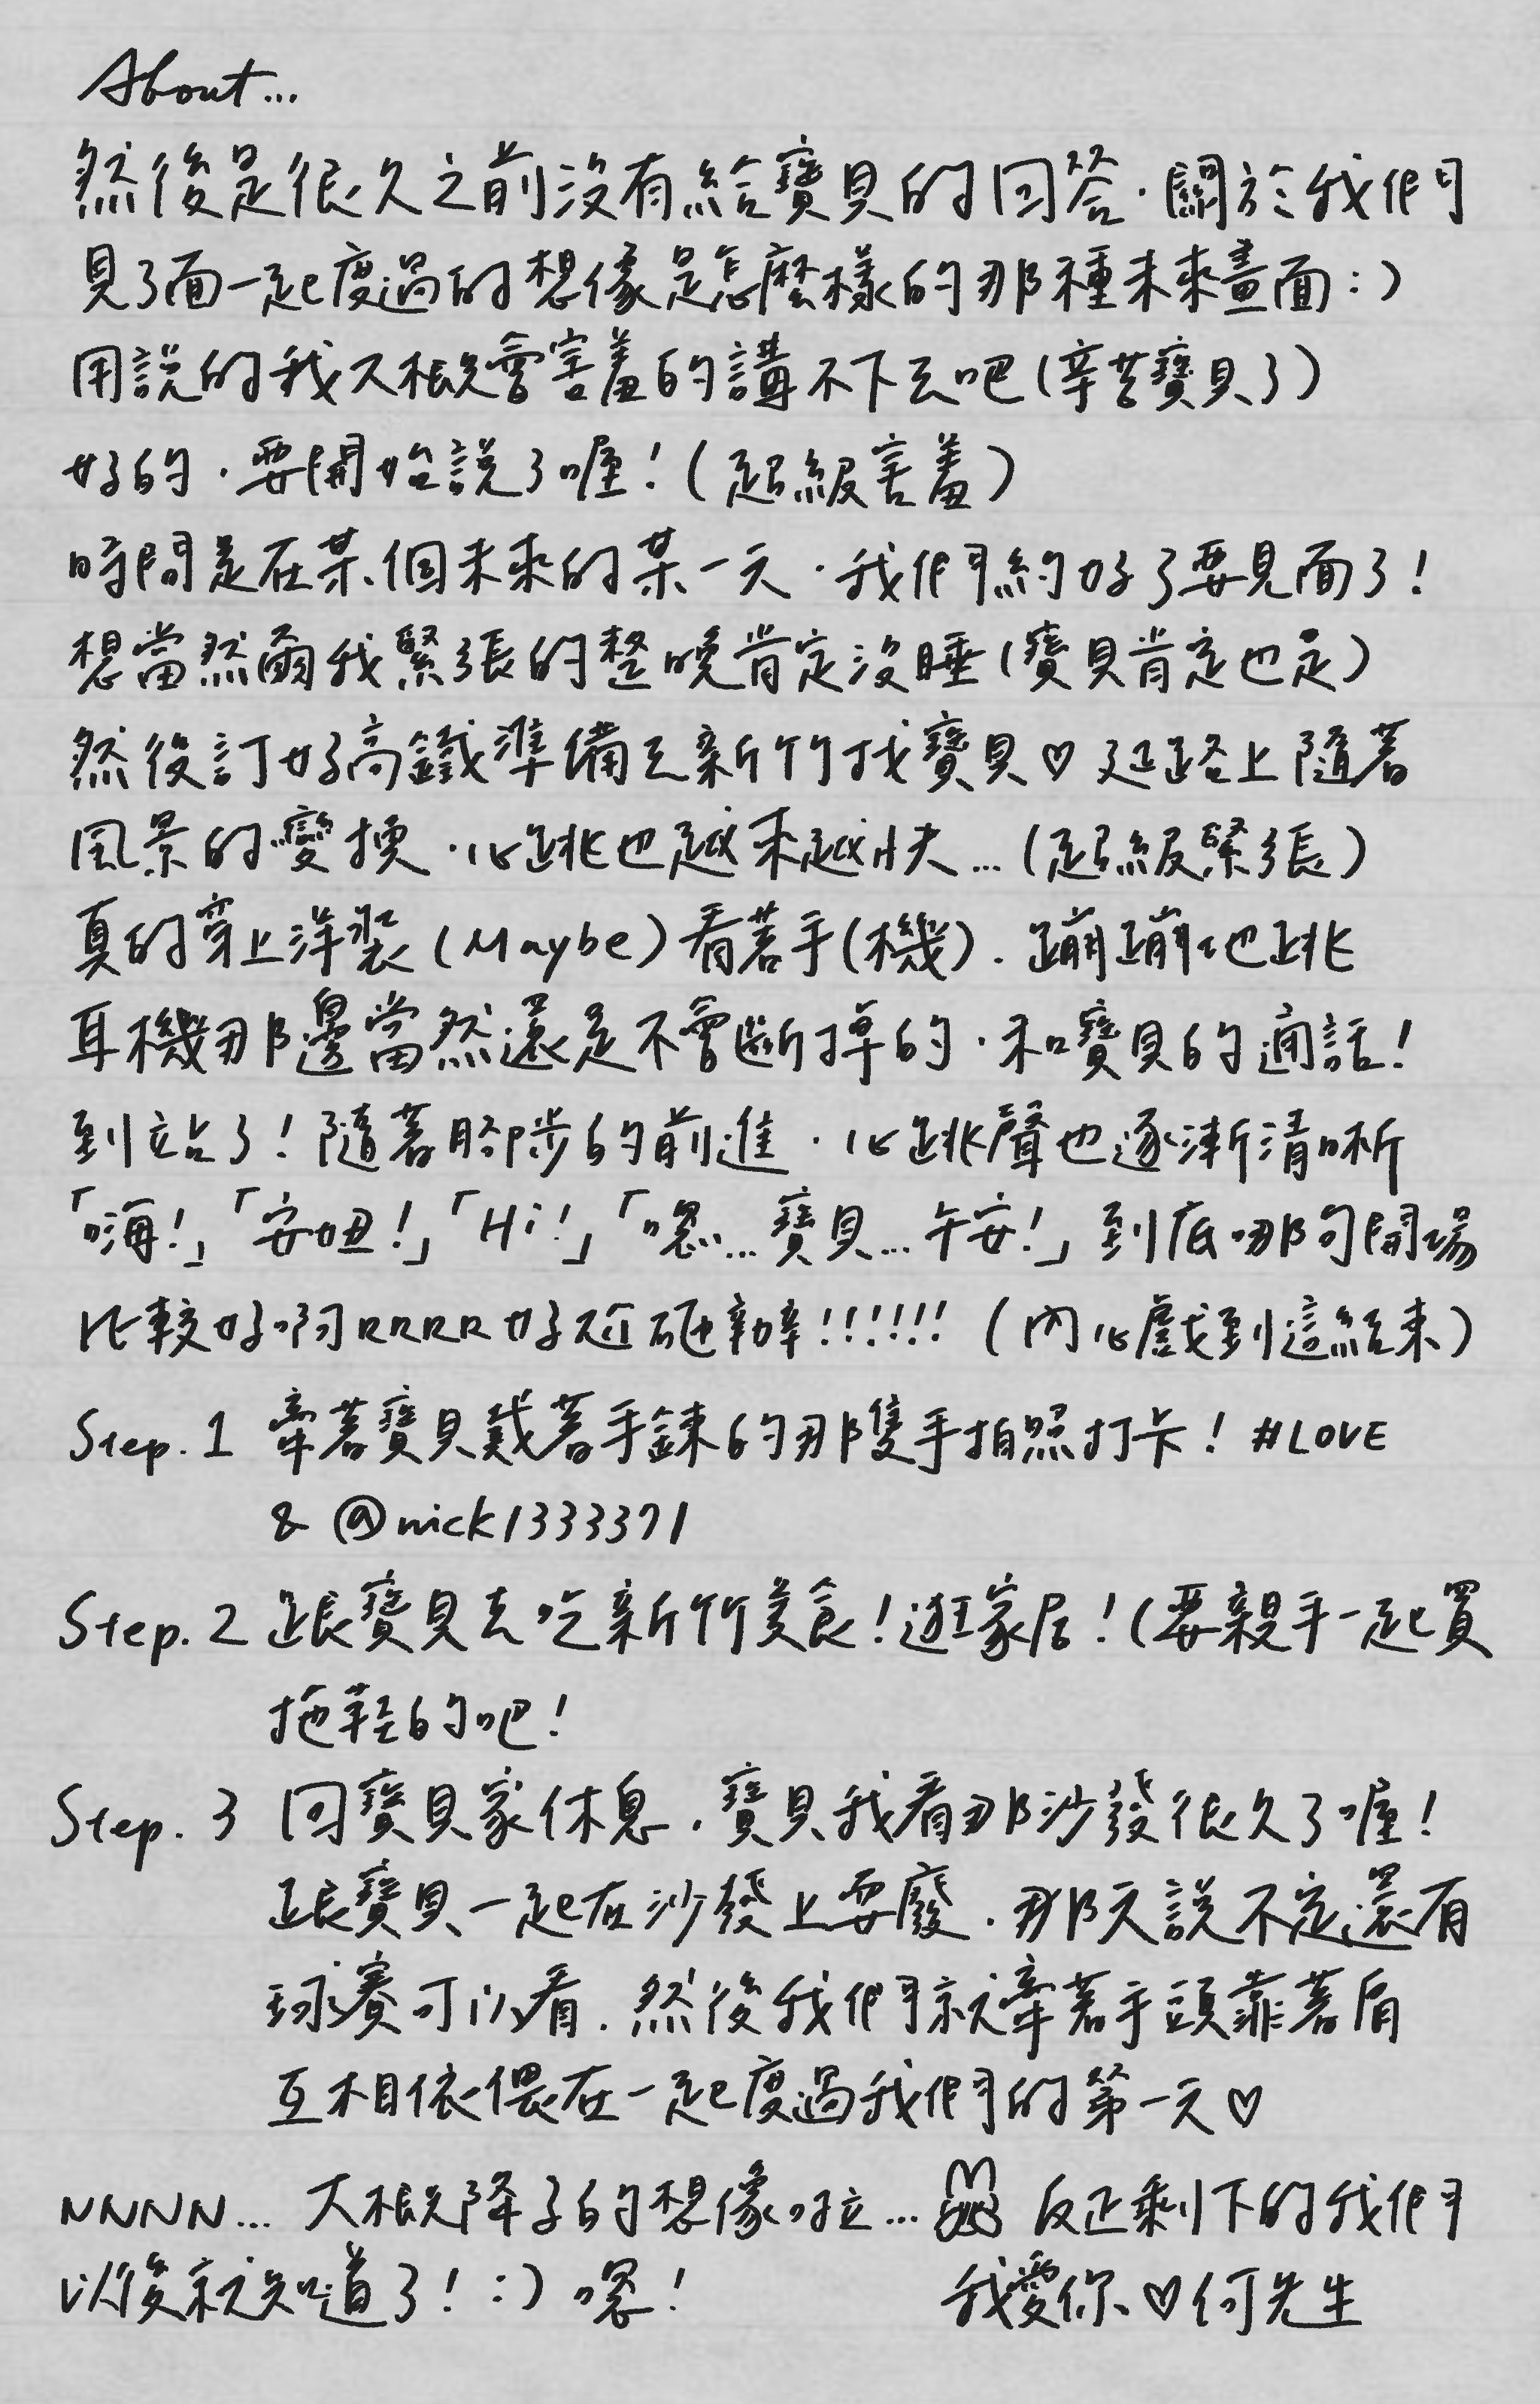 About...
然後是很久之前沒有給寶貝的回答．關於我們
見了面一起度過的想像是怎麼樣的那種未來畫面：)
用說的我大概會害羞的講不下去吧（辛苦寶貝了）
好的．要開始說了喔！（超級害羞）
時間是在某個未來的某一天．我們約好了要見面了！
想當然爾我緊張的整晚肯定沒睡（寶貝肯定也是）
然後訂好高鐵準備去新竹找寶貝♡ 沿路上隨著
風景的變換．心跳也越來越快...（超級緊張）
真的穿上洋裝（Maybe）看著手（機）．蹦蹦地跳
耳機那邊當然還是不會斷掉的．和寶貝的通話！
到站了！隨著腳步的前進．心跳聲也逐漸清晰
「嗨！」「安妞！」「Hi！」「嗯...寶貝...午安！」到底哪句開場
比較好啊RRRR好尬砸辦!!!!!!（內心戲到這結束）
Step.1 牽著寶貝戴著手鍊的那隻手拍照打卡！#LOVE
& @nick1333371
Step.2 跟寶貝去吃新竹美食！逛家居！（要親手一起買
拖鞋的吧！
Step.3 回寶貝家休息．寶貝我看那沙發很久了喔！
跟寶貝一起在沙發上耍廢．那天說不定還有
球賽可以看．然後我們就牽著手頭靠著肩
互相依偎在一起度過我們的第一天♡
NNNN... 大概降子的想像啦... 反正剩下的我們
以後就知道了！：) 嗯！ 我愛你♡何先生